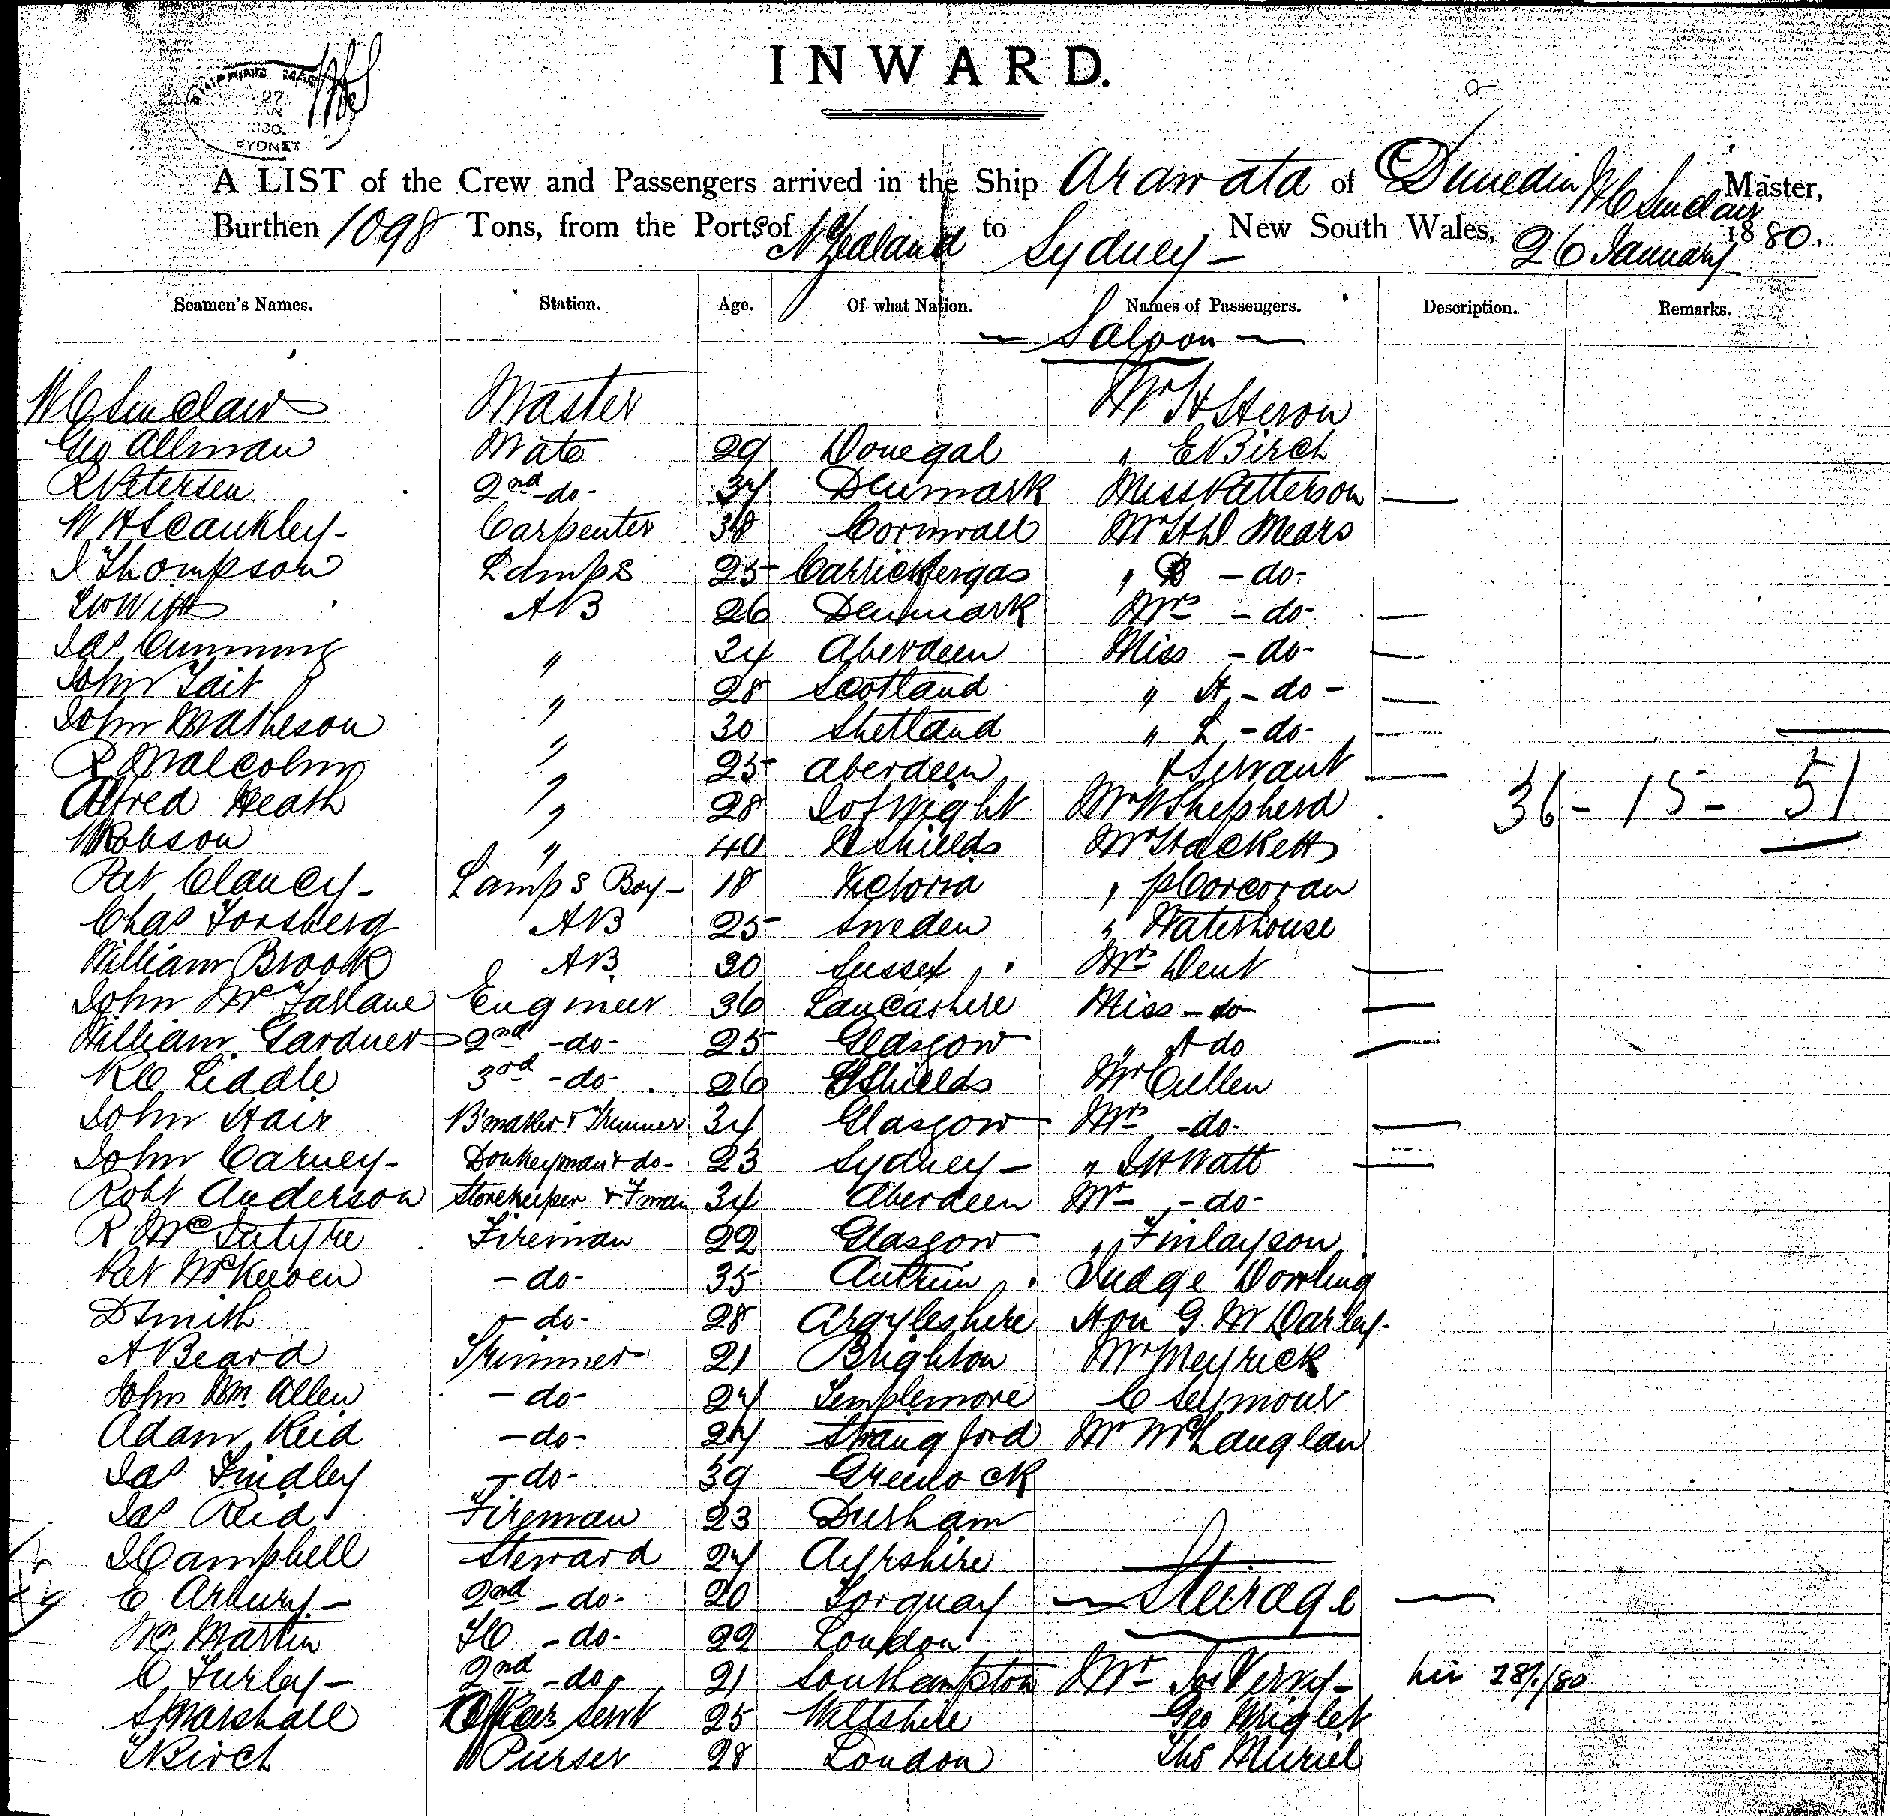 INWARD.
SHIPPING MAS
27
SYDNEY
A LIST of the Crew and Passengers arrived in the Ship Arawata of Dunedin W C Sinclair Master,
Burthen 1098 Tons, from the Ports of N Zealand to Sydney - New South Wales, 26 January 1880.
Seamen's Names. Station. Age. Of what Nation. Names of Passengers. Description. Remarks.
- Saloon -
W C Sinclair Master Mr H Heron
Geo Allman Mate 29 Donegal " E Birch
R Petersen 2nd -do- 34 Denmark Miss Patterson —
W H Scankley - Carpenter 38 Cornwall Mr H D Mears
J Thompson Lamps 25 Carrickfergas " B - do-
AB 26 Denmark Mrs - do- —
Jas Cumming " 34 Aberdeen Miss - do- —
John Tait " 28 Scotland " H - do - —
John Matheson " 30 Shetland " L - do- —
R Malcolm " 25 Aberdeen & Servant —
Alfred Heath " 28 I of Wight Mr W Shepherd 36 - 15 - 51
W Robson " 40 N Shields Mr Hackett
Pat Clancy - Lamps Boy - 18 Victoria " P Corcoran
Chas Forsberg AB 25 Sweden " Waterhouse
William Brook AB 30 Sussex Mrs Dent —
John McFarlane Engineer 36 Lancashire Miss - do —
William Gardner 2nd -do- 25 Glasgow " A do —
R C Liddle 3rd -do- 26 Shields Mr Cullen
John Hair B'maker & Trimmer 34 Glasgow Mrs -do- —
John Carney - Donkeyman & do- 23 Sydney - " J H Watt —
Robt Anderson Storekeeper & F'man 34 Aberdeen Mr - do-
R McIntyre Fireman 22 Glasgow " Finlayson
Pat McKeeven - do- 35 Antrim Judge Dowling
D Smith - do- 28 Argyleshire Hon G M Darley -
A Beard Trimmer 21 Brighton Mr Meyrick
John Wm Allen - do- 24 Templemore C Seymour
Adam Reid - do- 24 Strangford Mr McLauglan
Jas Findley - do- 39 Greenock
Jas Reid Fireman 23 Durham
J Campbell Steward 24 Ayrshire
C Arbury - 2nd - do- 20 Torquay - Steirage —
Wm Martin FC - do- 22 London
C Furley - 2nd - do, 21 Southampton Mr Jos Verry -
S Marshall Servt 25 Wiltshire Geo Wright
T Birch Purser 28 London Thos Muriel